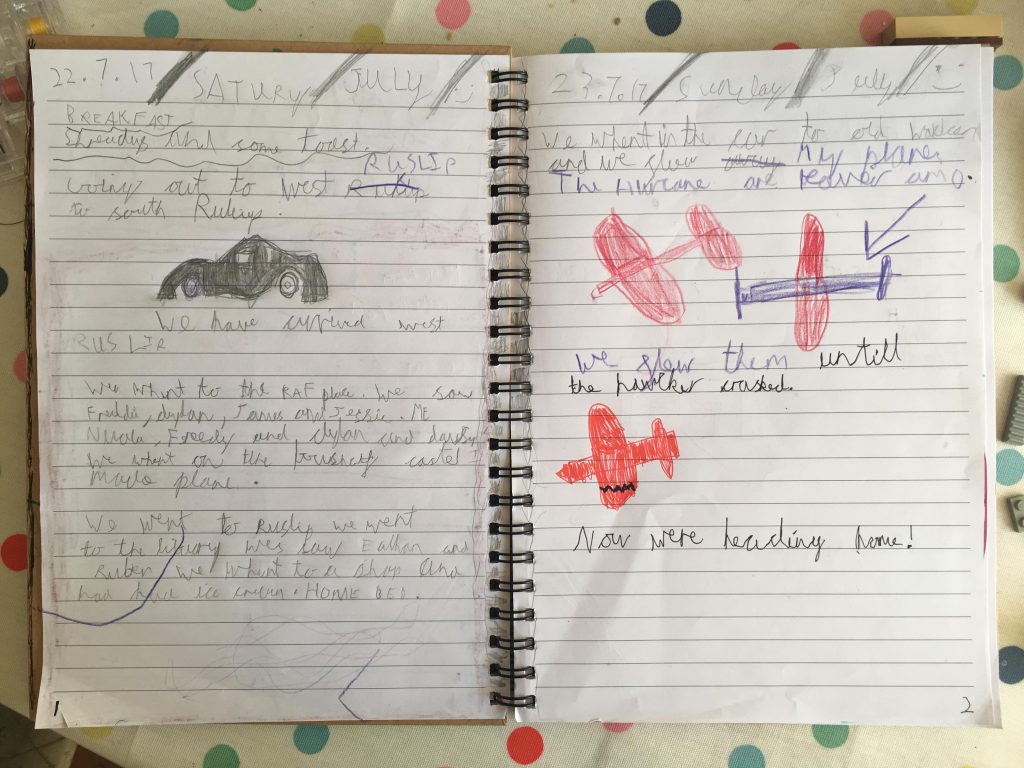 22.7.17 SATURY JULLY
BREAKFAST
Shreadys And some toast.
RUSLIP
Going out to West
to south Rulisp.
We have arrived west
RUSLIP
We whent to the RAF place. We saw
Freddie, dylan, James and Jessie. ME
Nuala, Freedy and dylan and
We whent on the bounchy castel
Made plane.
We went to Ruslip we went
to the library wes saw Eathan and
Ruber we whent to a shop and
had had ice cream. HOME BED.
1
23.7.17 Sunday Jully
We whent in the car to old
and we flew my plane,
The Hurcane and
We flew them untill
the hawker crashed.
Now were heading home!
2